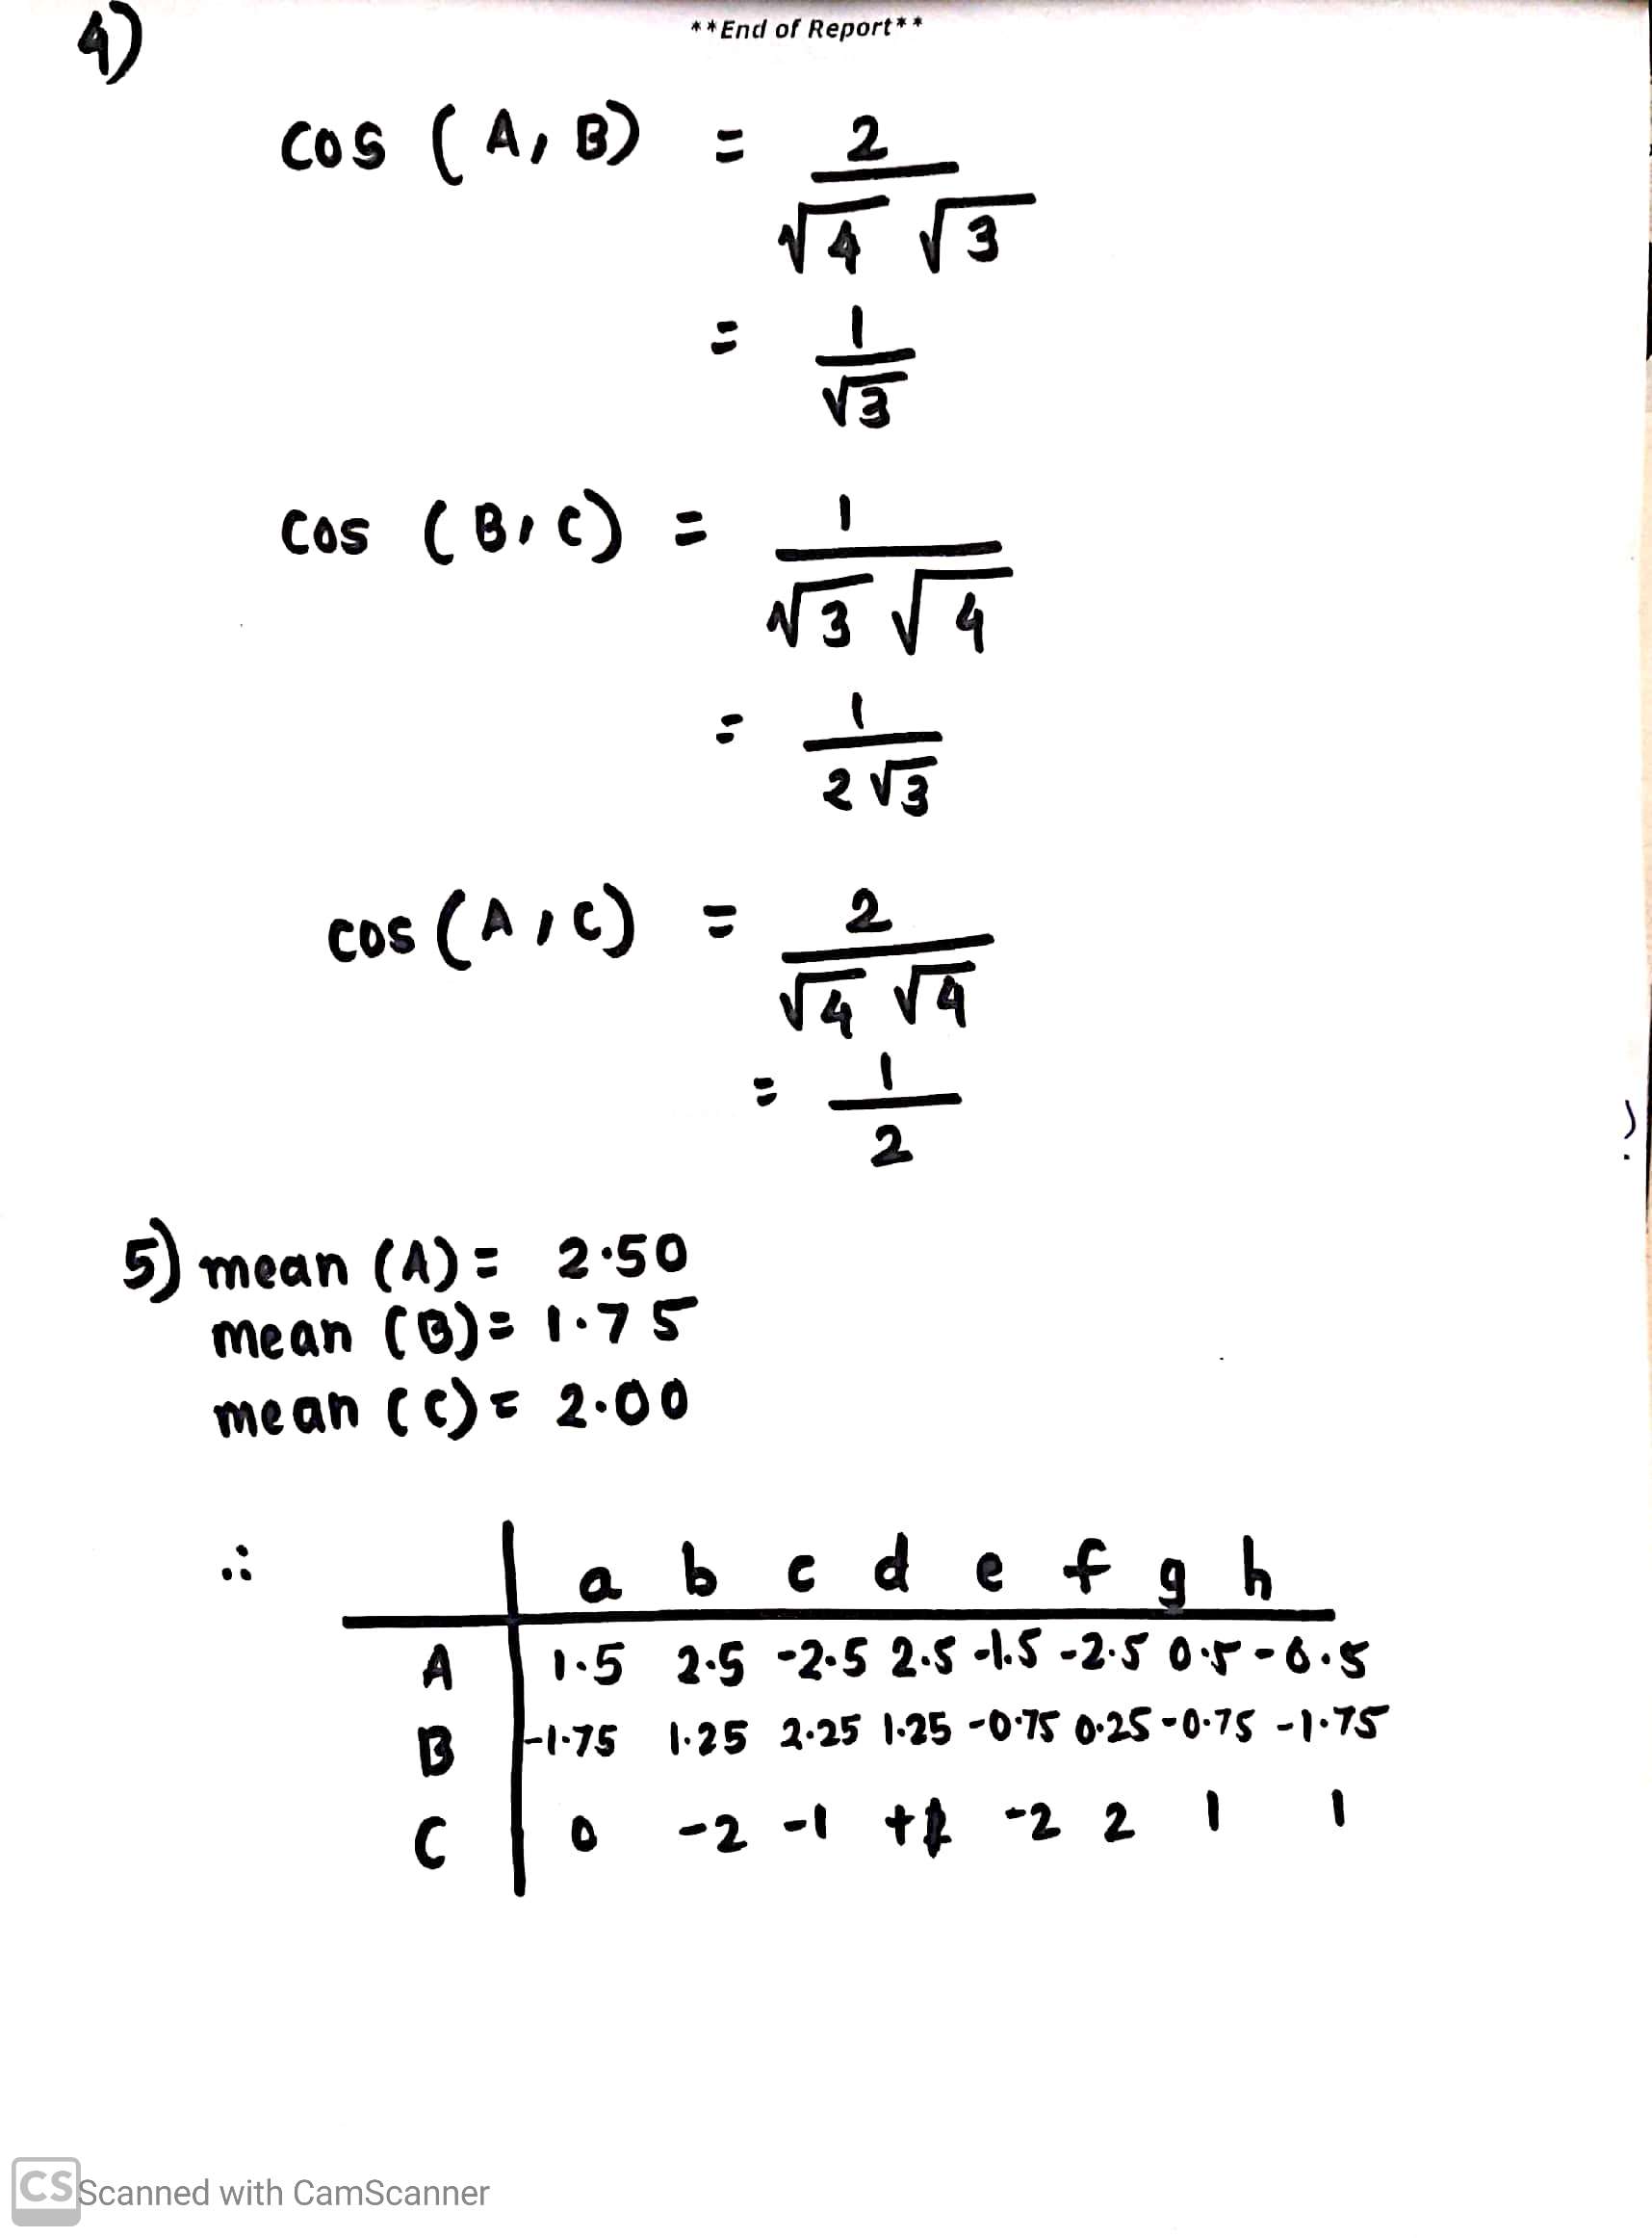 4)
**End of Report**
cos (A, B) = 2
√4 √3
= 1
√3
cos (B, C) = 1
√3 √4
= 1
2√3
cos (A, C) = 2
√4 √4
= 1
2
5) mean (A) = 2.50
mean (B) = 1.75
mean (C) = 2.00
∴ a b c d e f g h
A 1.5 2.5 -2.5 2.5 -1.5 -2.5 0.5 -0.5
B -1.75 1.25 2.25 1.25 -0.75 0.25 -0.75 -1.75
C 0 -2 -1 -2 2 1 1
CS Scanned with CamScanner